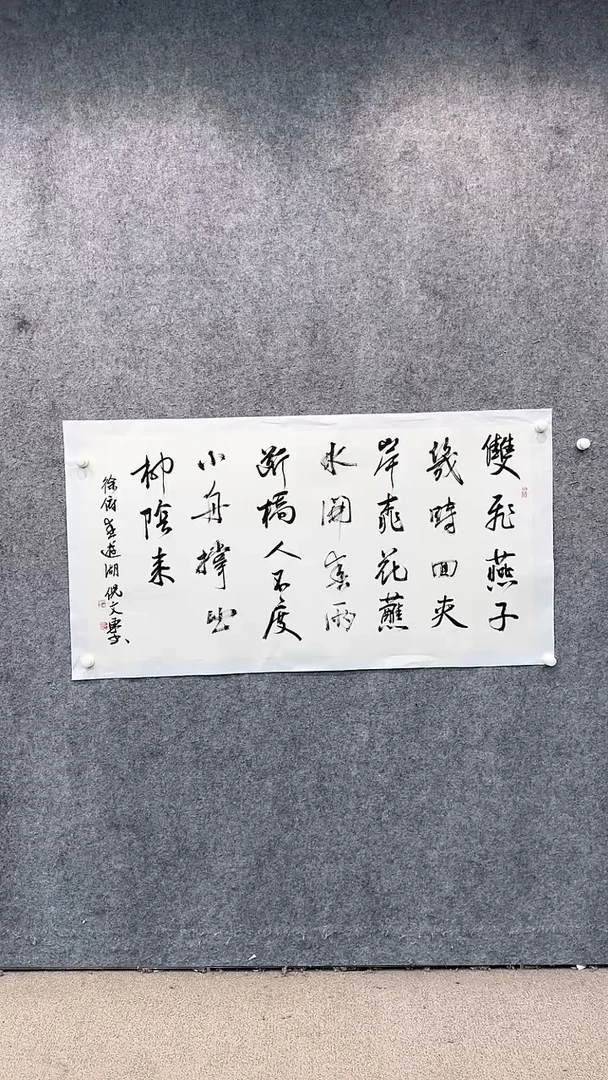 雙飛燕子
幾時回夾
岸桃花蘸
水開春雨
斷橋人不度
小舟撐出
柳陰來
徐俯春遊湖倪文東書